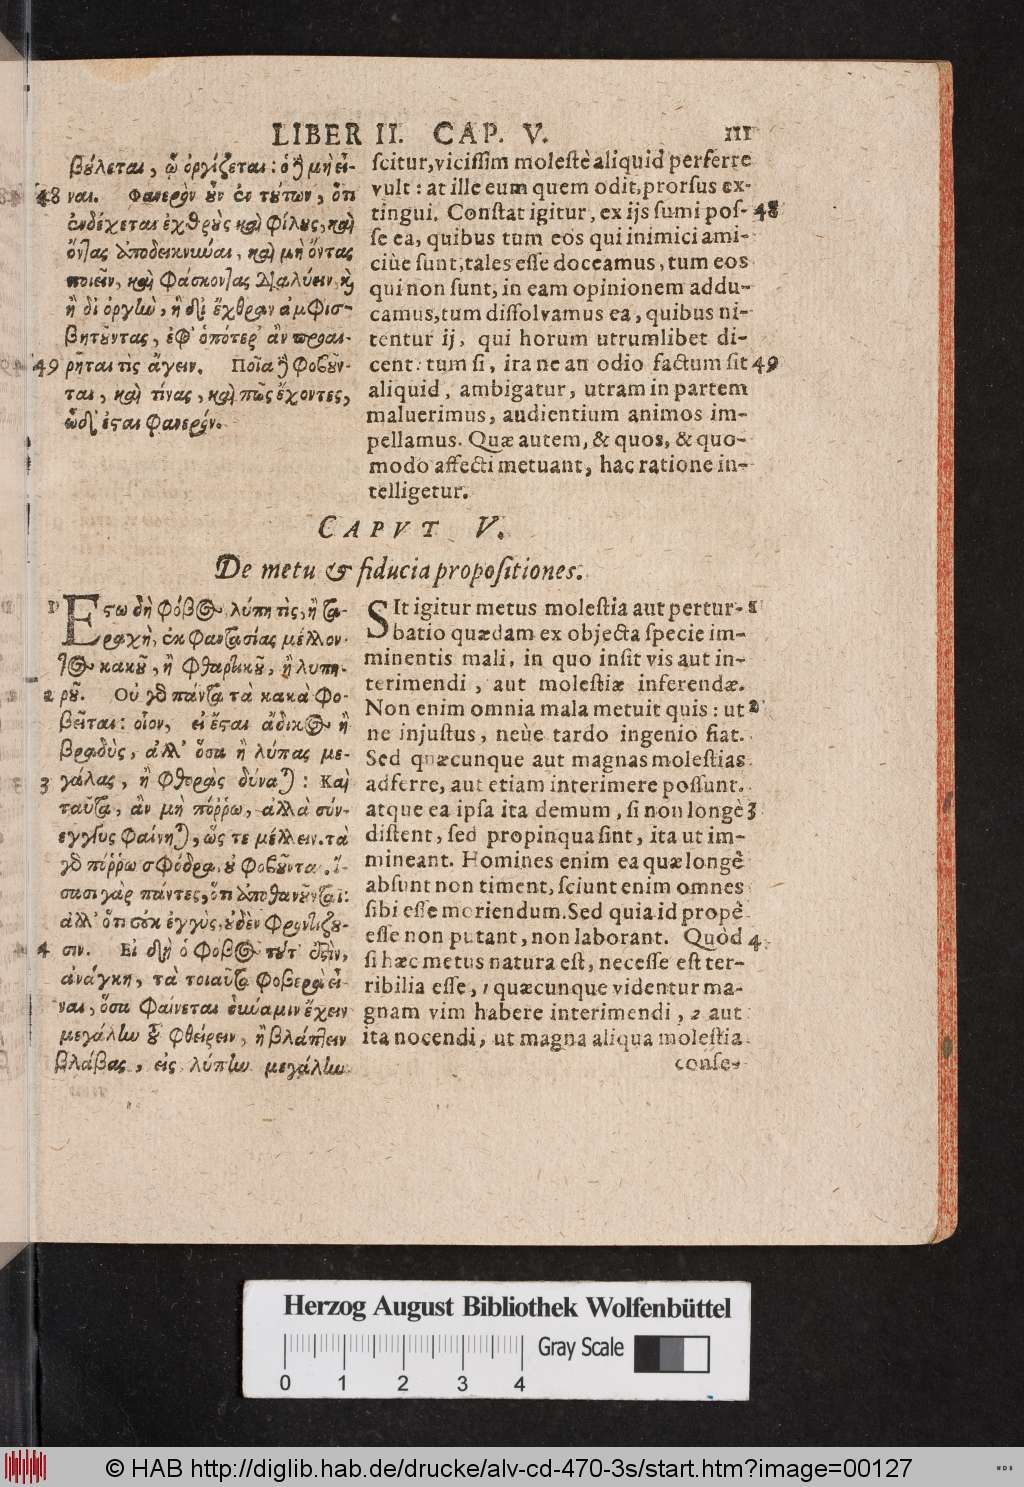 LIBER II. CAP. V. 111
βούλεται, ᾧ ὀργίζεται: ὁ δὲ μὴ εἶ-
48 ναι. Φανερὸν οὖν ἐκ τούτων, ὅτι
ἐνδέχεται ἐχθροὺς καὶ φίλους, καὶ
ὄντας ἀποδεικνύναι, καὶ μὴ ὄντας
ποιεῖν, καὶ φάσκοντας διαλύειν, καὶ
ἢ δι' ὀργὴν, ἢ δι' ἔχθραν ἀμφισ-
βητοῦντας, ἐφ' ὁπότερ' ἂν προαι-
49 ρῆται τὶς ἄγειν. Ποῖα δὲ φοβοῦν-
ται, καὶ τίνας, καὶ πῶς ἔχοντες,
ὧδ' ἔσται φανερόν.
scitur, vicissim molestè aliquid perferre
vult: at ille eum quem odit, prorsus ex-
tingui. Constat igitur, ex ijs sumi pos- 48
se ea, quibus tum eos qui inimici ami-
ciùe sunt, tales esse doceamus, tum eos
qui non sunt, in eam opinionem addu-
camus, tum dissolvamus ea, quibus ni-
tentur ij, qui horum utrumlibet di-
cent: tum si, ira ne an odio factum sit 49
aliquid, ambigatur, utram in partem
maluerimus, audientium animos im-
pellamus. Quæ autem, & quos, & quo-
modo affecti metuant, hac ratione in-
telligetur.
CAPVT V.
De metu & fiducia propositiones.
1 Εστω δὴ φόβος λύπη τὶς, ἢ τα-
ραχὴ, ἐκ φαντασίας μέλλον-
τος κακοῦ, ἢ φθαρτικοῦ, ἢ λυπη-
2 ροῦ. Οὐ γὰρ πάντα τὰ κακὰ φο-
βεῖται: οἷον, εἰ ἔσται ἄδικος ἢ
βραδὺς, ἀλλ' ὅσα ἢ λύπας με-
3 γάλας, ἢ φθορὰς δύναται: Καὶ
ταῦτα, ἂν μὴ πόῤῥω, ἀλλὰ σύν-
εγγυς φαίνηται, ὥς τε μέλλειν. τὰ
γὰρ πόῤῥω σφόδρα, οὐ φοβοῦνται. ἴ-
σασι γὰρ πάντες, ὅτι ἀποθανοῦνται:
ἀλλ' ὅτι οὐκ ἐγγὺς, οὐδὲν φροντίζου-
4 σιν. Εἰ δὴ ὁ φόβος τοῦτ' ἐστὶν,
ἀνάγκη, τὰ τοιαῦτα φοβερὰ εἶ-
ναι, ὅσα φαίνεται δύναμιν ἔχειν
μεγάλην τοῦ φθείρειν, ἢ βλάπτειν
βλάβας, εἰς λύπην μεγάλην
SIt igitur metus molestia aut pertur- 1
batio quædam ex objecta specie im-
minentis mali, in quo insit vis aut in-
terimendi, aut molestiæ inferendæ.
Non enim omnia mala metuit quis: ut 2
ne injustus, neùe tardo ingenio fiat.
Sed quæcunque aut magnas molestias
adferre, aut etiam interimere possunt.
atque ea ipsa ita demum, si non longè 3
distent, sed propinqua sint, ita ut im-
mineant. Homines enim ea quæ longè
absunt non timent, sciunt enim omnes
sibi esse moriendum. Sed quia id propè
esse non putant, non laborant. Quòd 4
si hæc metus natura est, necesse est ter-
ribilia esse, 1 quæcunque videntur ma-
gnam vim habere interimendi, 2 aut
ita nocendi, ut magna aliqua molestia
conse-
Herzog August Bibliothek Wolfenbüttel
0 1 2 3 4
Gray Scale
© HAB http://diglib.hab.de/drucke/alv-cd-470-3s/start.htm?image=00127